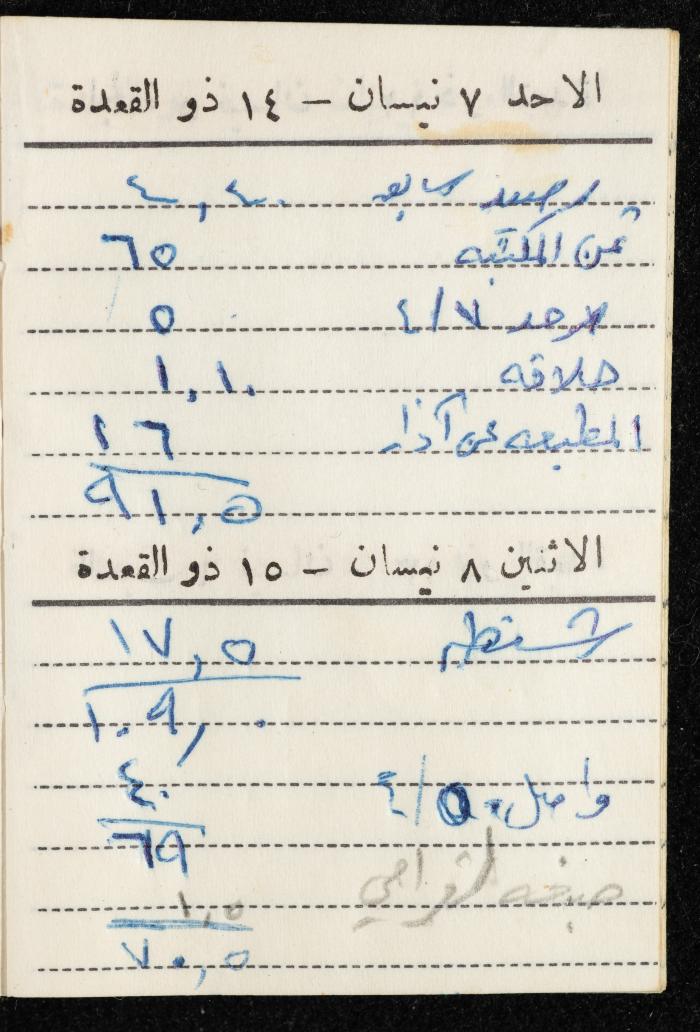 الاحد ٧ نيسان – ١٤ ذو القعدة
رصيد سابق ٤,٤٠
ثمن المكتبه ٦٥
الاحد ٤/٧ ٥
حلاقه ١,١٠
المطبعه عن آذار ١٦
٩١,٥
الاثنين ٨ نيسان – ١٥ ذو القعدة
١٧,٥
١٠٩,٠٠
واصل ٤/٥ ٤٠
٦٩
صبغه ١,٥
٧٠,٥